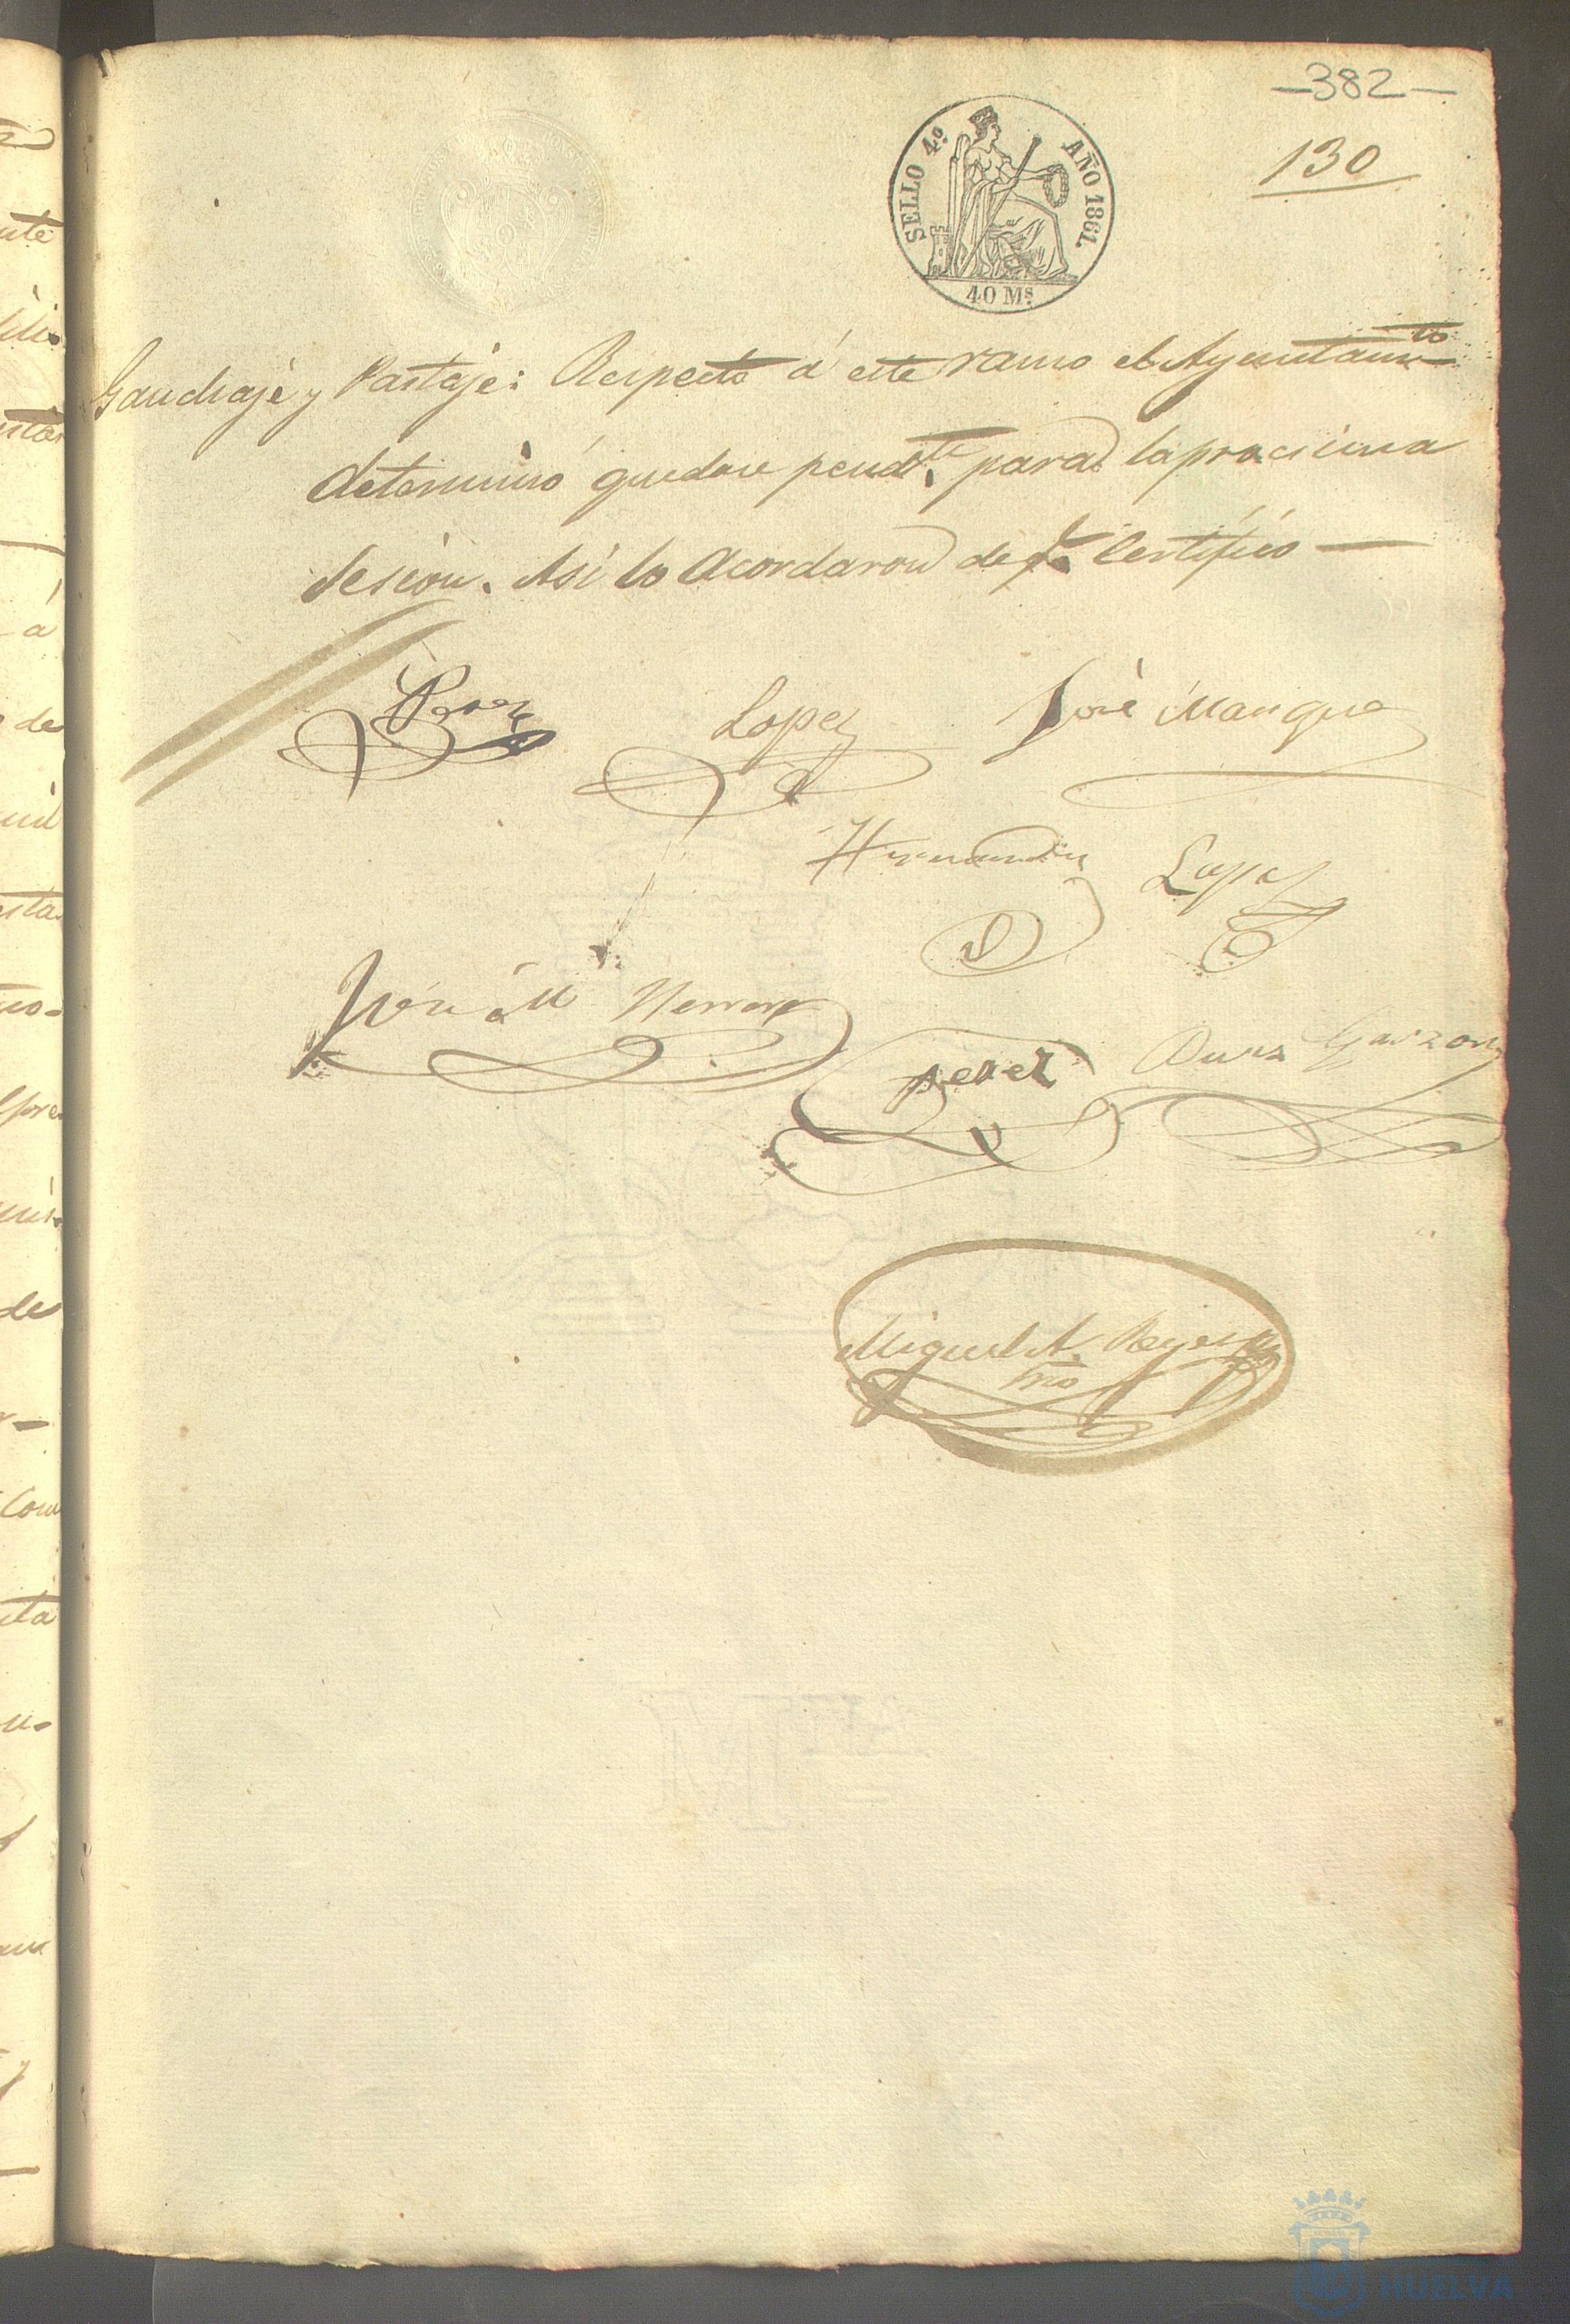 —382—
130
SELLO 4º AÑO 1861.
40 Ms.
y Pastaje: Respecto á este ramo el Ayuntamto
determinó quedase pendte para la procsima
Sesion. Asi lo Acordaron de qe Certifico —
Perez Lopez José Mangue
Hernandez Lopez
José Mª Herrera
Perez Garzon
Miguel A. Reyes
Srio
HUELVA